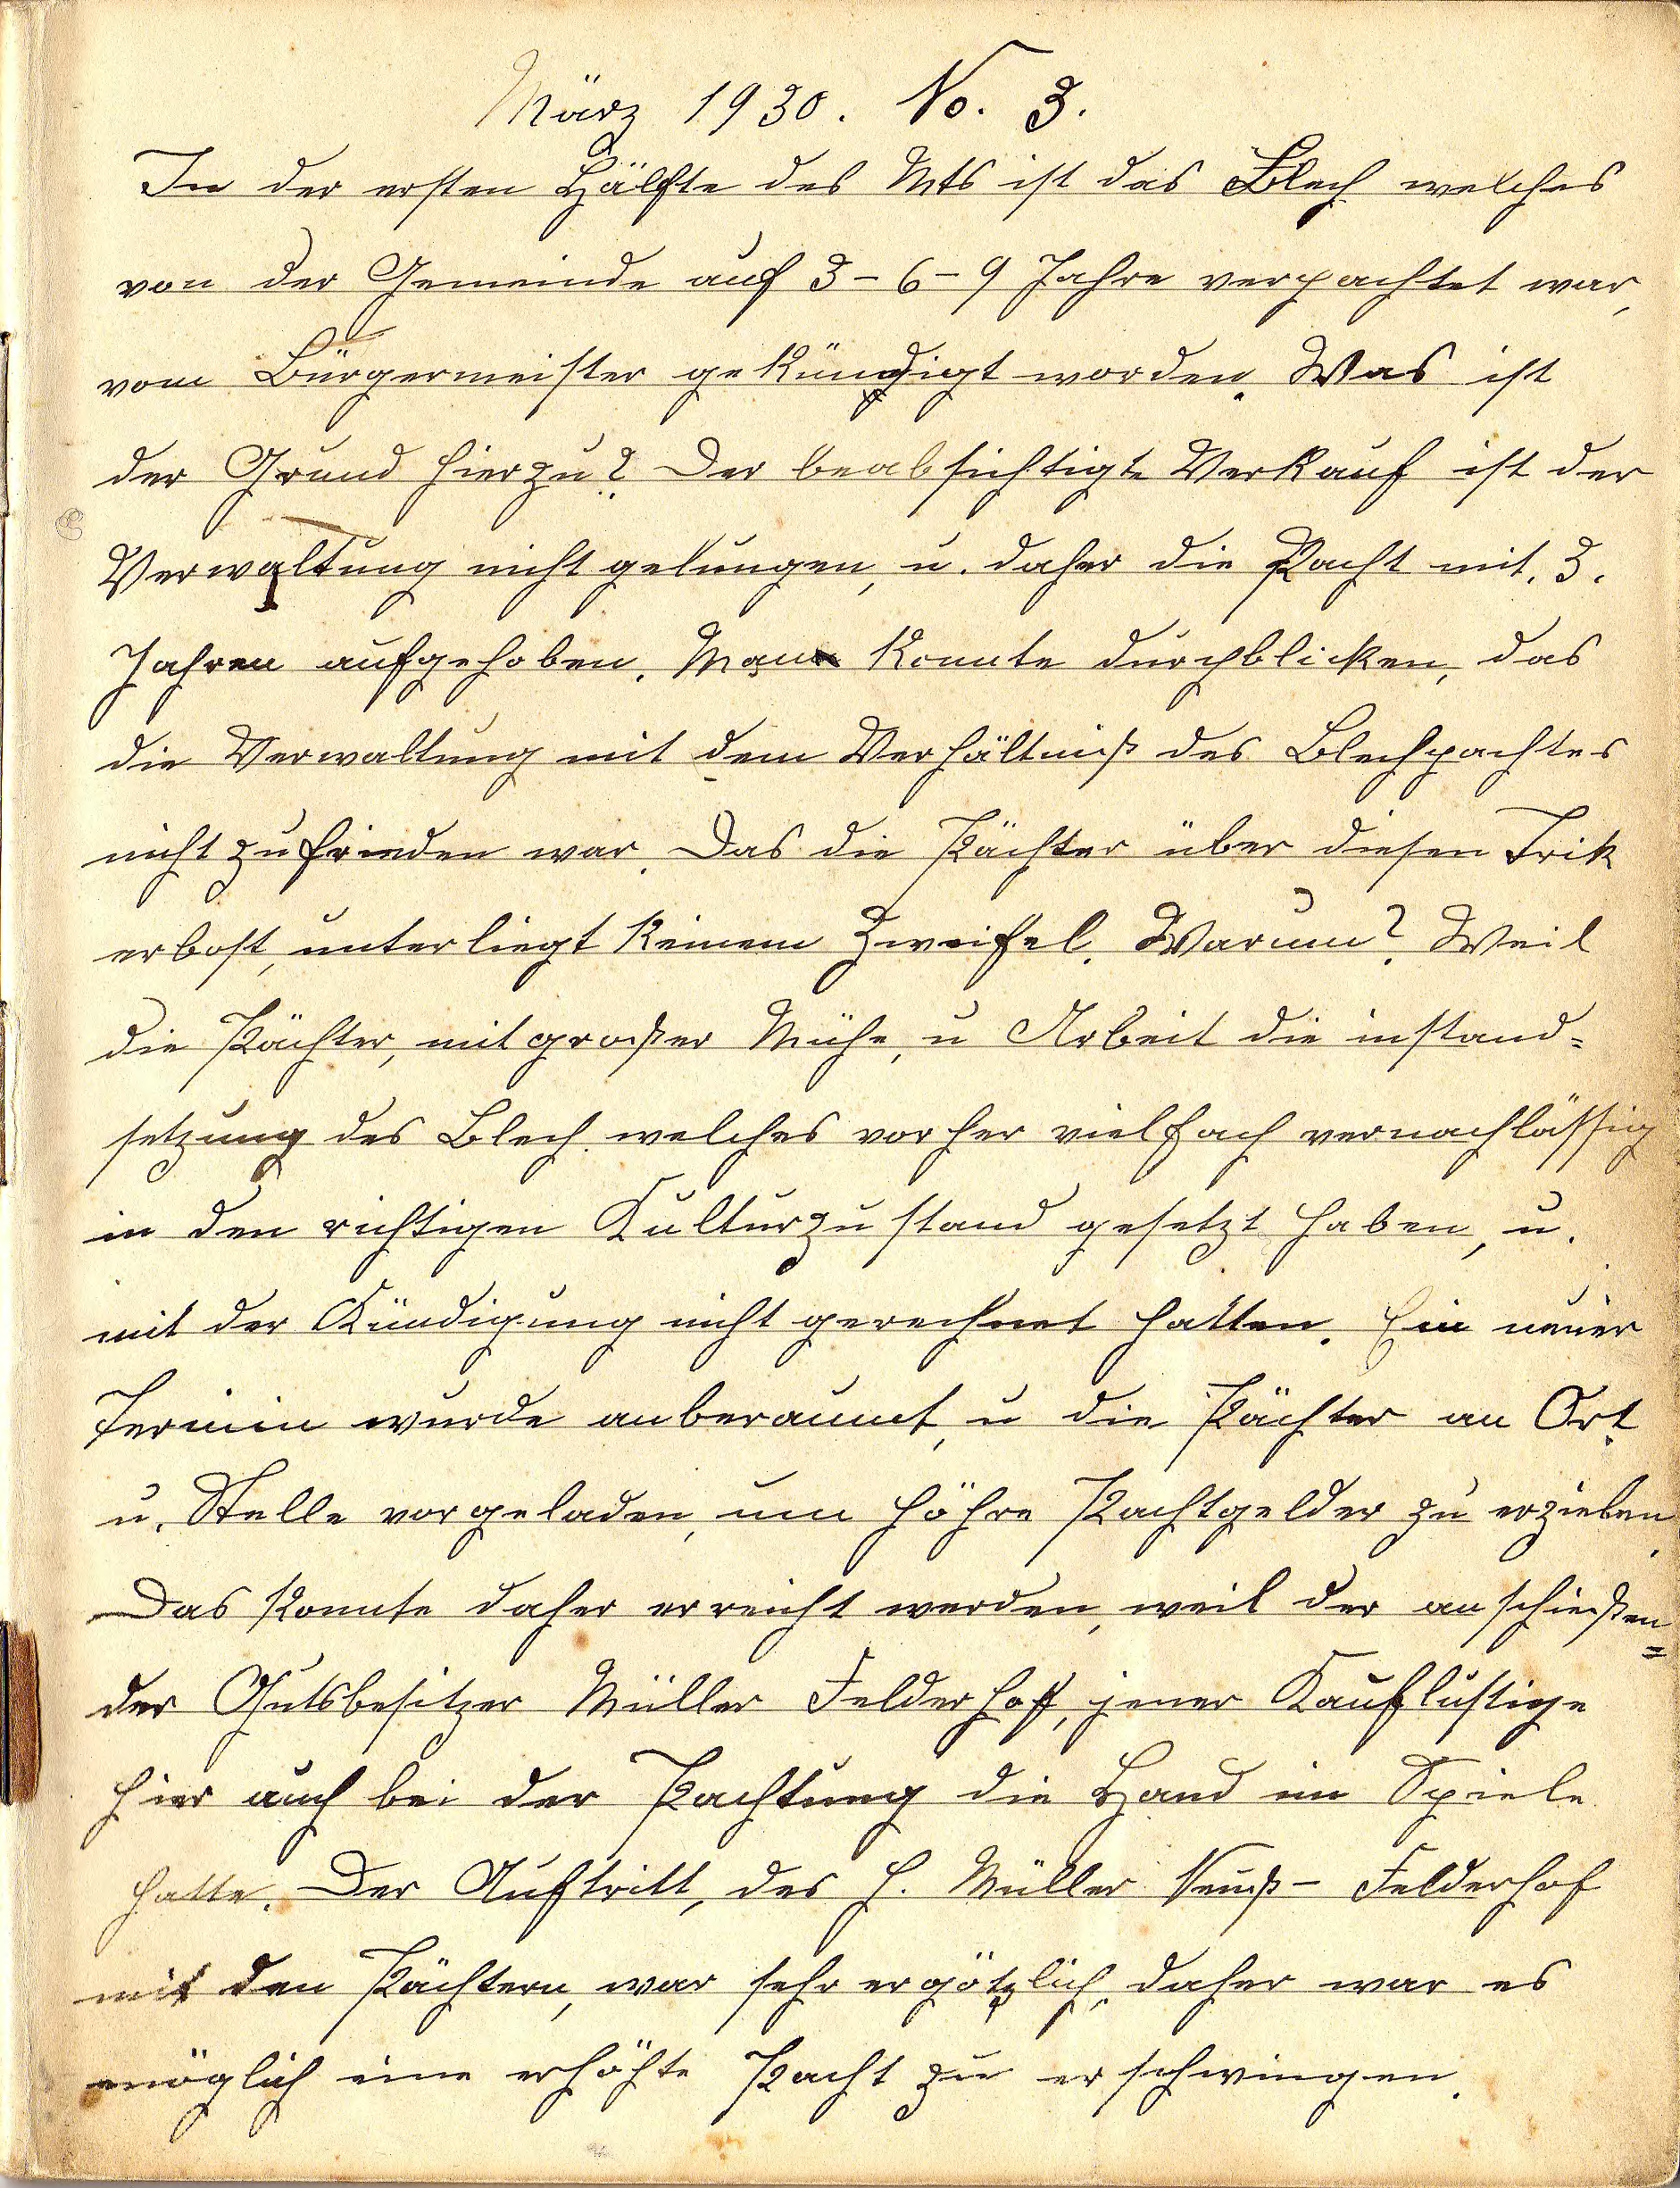 März 1930. No. 3.
In der ersten Hälfte des Mts ist das Blech welches
von der Gemeinde auf 3-6-9 Jahre verpachtet war,
vom Bürgermeister gekündigt worden. Was ist
der Grund hierzu? Der beabsichtigte Verkauf ist der
Verwaltung nicht gelungen, u. daher die Pacht mit. 3.
Jahren aufgehoben. Man konnte durchblicken, das
die Verwaltung mit dem Verhältniß des Blechpachtes
nicht zufrieden war. Das die Pächter über diesen Trik
erbost, unterliegt keinem Zweifel. Warum? Weil
die Pächter, mit großer Mühe, u Arbeit die instand=
setzung des Blech welches vorher vielfach vernachlässig
in den richtigen Kulturzustand gesetzt haben, u.
mit der Kündigung nicht gerechnet hatten. Ein neuer
Termin wurde anberaumt, u die Pächter an Ort
u. Stelle vorgeladen, um höhre Pachtgelder zu erzielen.
Das konnte daher erreicht werden, weil der anschießen=
der Gutsbesitzer Müller Felderhoff, jener Kauflustige
hier auch bei der Pachtung die Hand im Spiele
hatte. Der Auftritt, des H. Müller Neuß- Felderhof
mit den Pächtern, war sehr ergötzlich, daher war es
möglich eine erhöhte Pacht zu erschwingen.